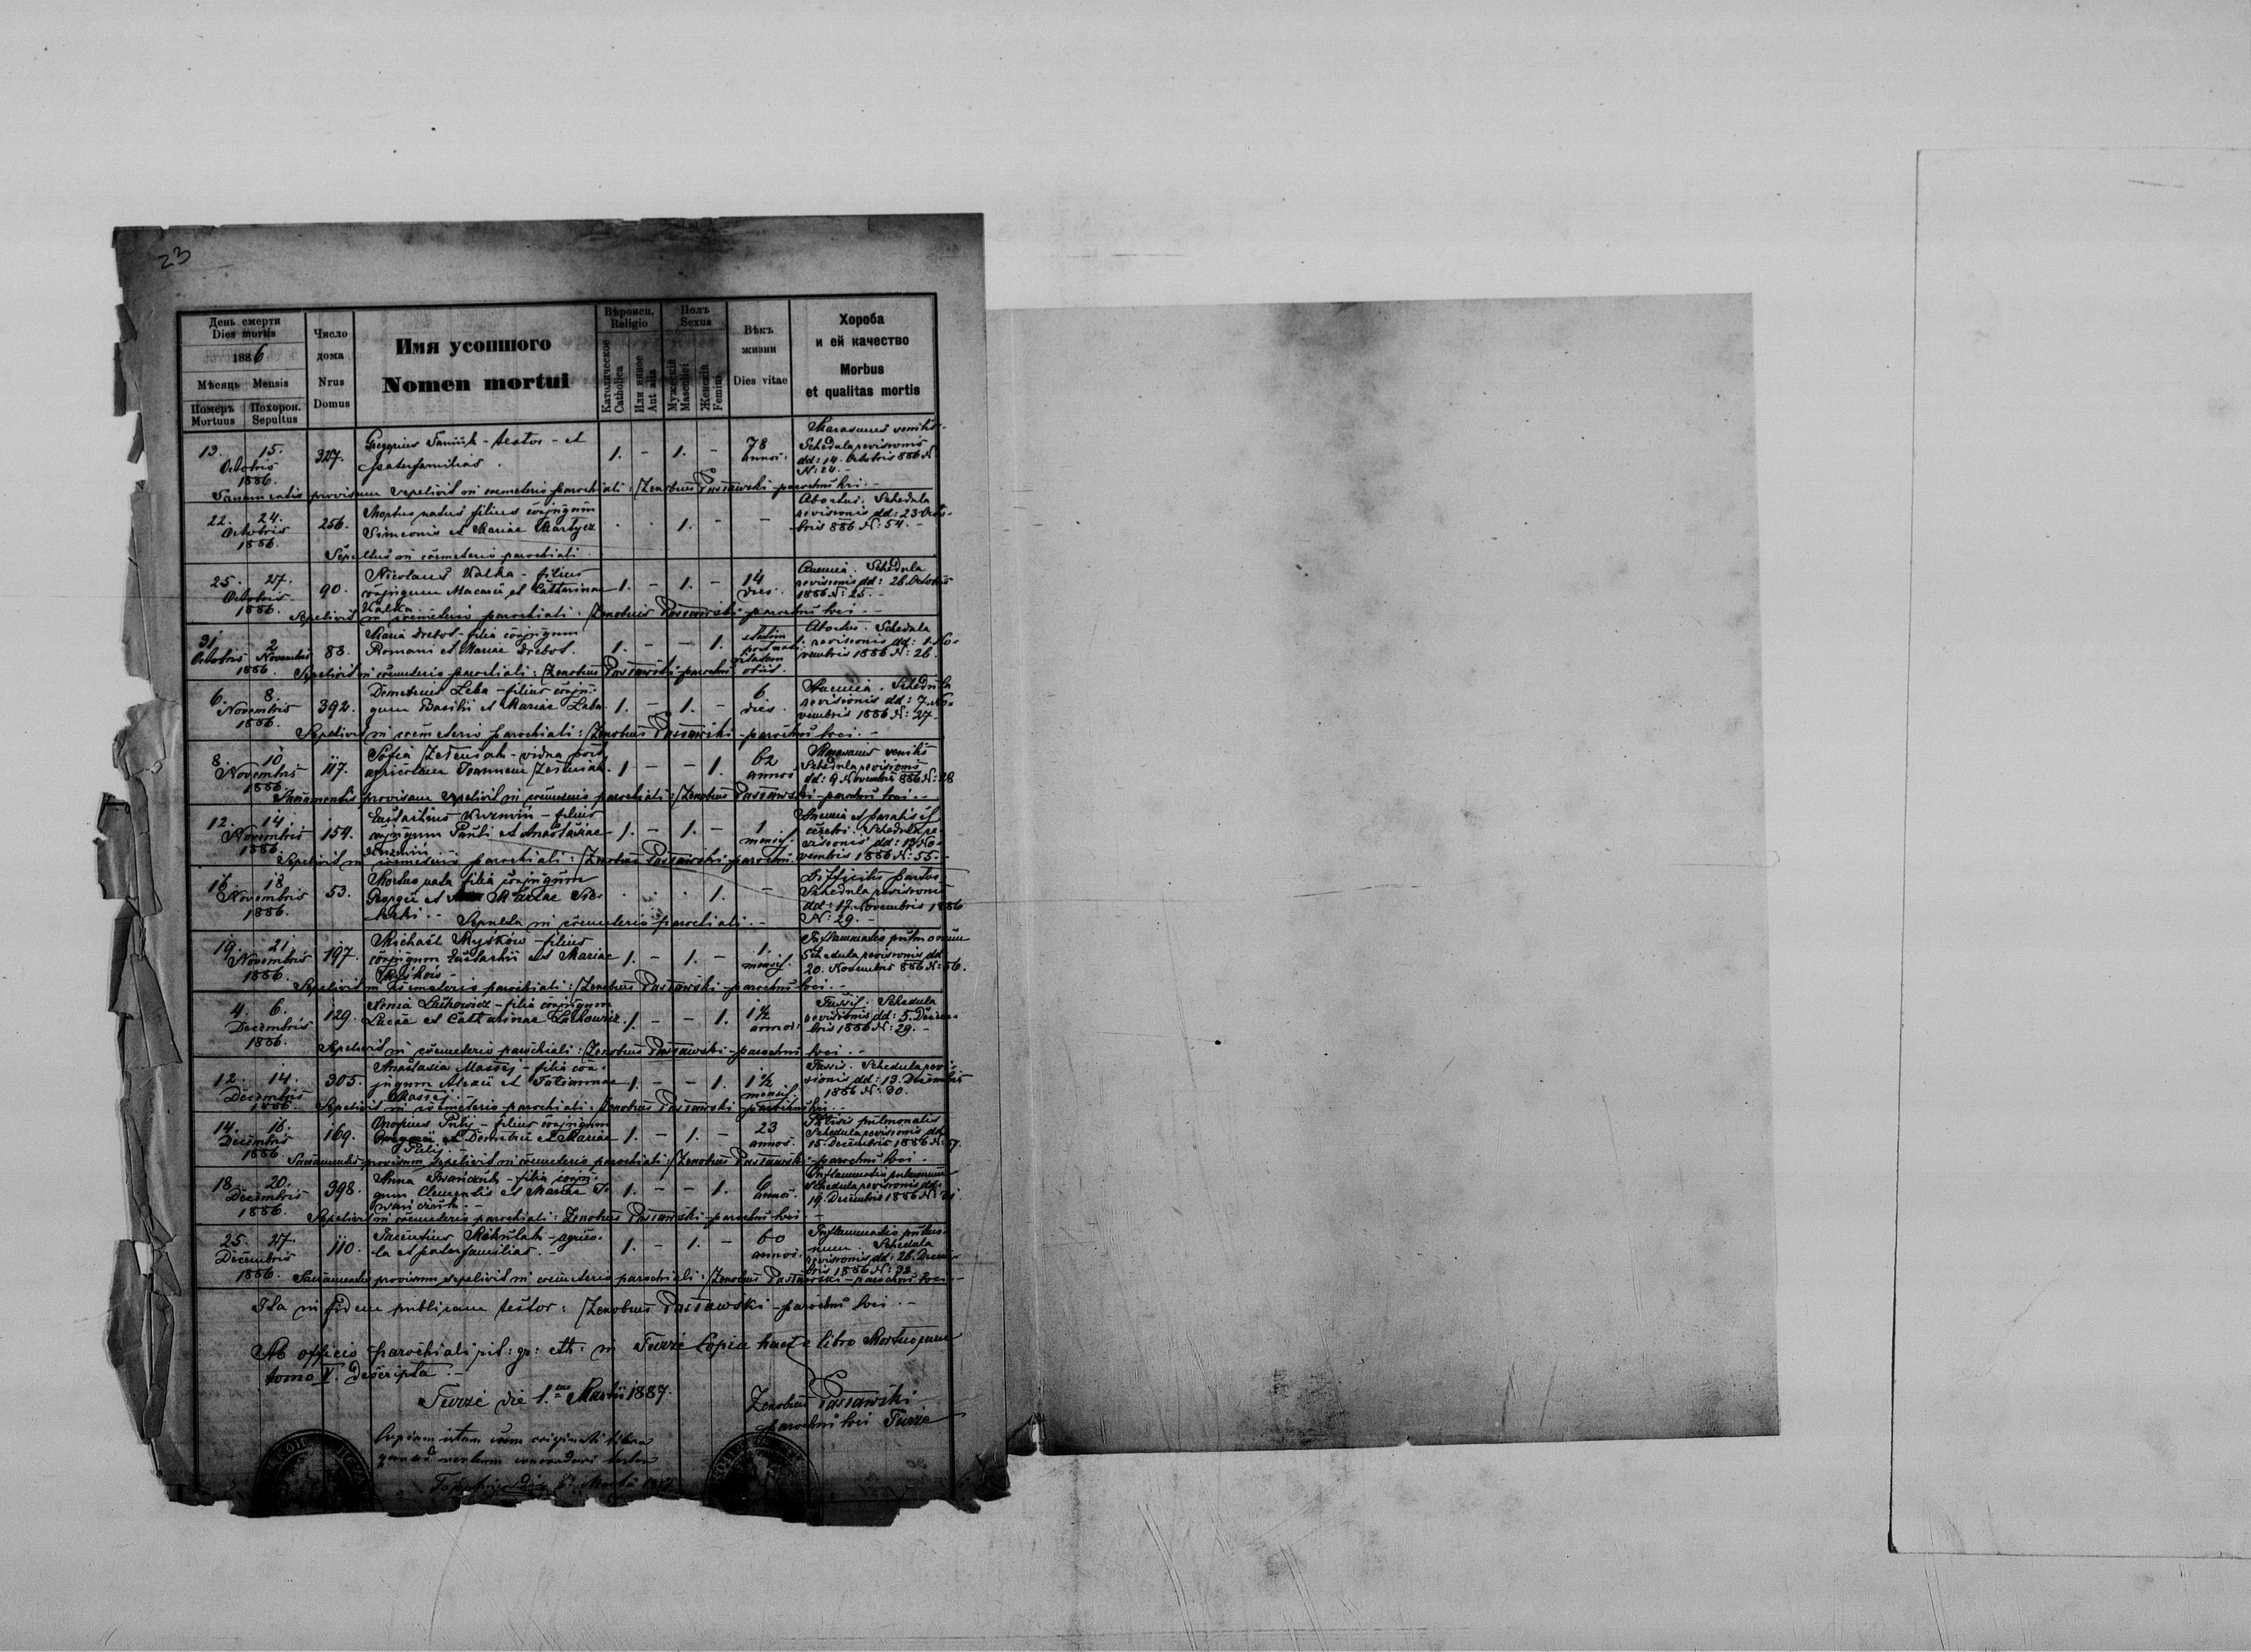 23
День смерти
Dies mortis
1886
Мѣсяць Mensis
Померъ Похорон.
Mortuus Sepultus
Число
дома
Nrus
Domus
Имя усопшого
Nomen mortui
Вѣроисп.
Religio
Католическое
Catholica
Или инное
Aut alia
Полъ
Sexus
Мужескій
Masculini
Женскій
Feminini
Вѣкъ
жизни
Dies vitae
Хороба
и ей качество
Morbus
et qualitas mortis
13. 15.
Octobris
1886.
327.
Gregorius - testor - et
paterfamilias.
1. - 1. -
78
annos.
Marasmus senilis
Schedula revisionis
dd: 14. Octobris 886 N
N: 24. -
provisum sepelivit in coemeterio parochiali: Zenobius Pasławski - parochus loci. -
22. 24.
Octobris
1886.
256.
Mortuus natus filius conjugum
Simeonis et Mariae Martycz
1. - -
Abortus. Schedula
revisionis dd: 23 Octo-
bris 886 N: 54. -
Sepultus in coemeterio parochiali.
25. 27.
Octobris
1886.
90.
Nicolaus Kalka - filius
conjugum Macarii et Catharinae
Kalka
1. - 1. -
14
dies.
Anemia. Schedula
revisionis dd: 26. Octobris
1886 N: 25. -
Sepelivit in coemeterio parochiali: Zenobius Pasławski - parochus loci. -
31. 2
Octobris Novembris
1886.
88.
Maria Drebot - filia conjugum
Romani et Mariae Drebot.
1. - - 1.
statim
post nati-
vitatem
obiit.
Abortus. Schedula
revisionis dd: 1. No-
vembris 1886 N: 26.
Sepelivit in coemeterio parochiali: Zenobius Pasławski - parochus
6. 8.
Novembris
1886.
392.
Demetrius Leba - filius conju-
gum Basilii et Mariae Leba.
1. - 1. -
6
dies.
Anemia. Schedula
revisionis dd: 7. No-
vembris 1886 N: 27.
Sepelivit in coemeterio parochiali: Zenobius Pasławski - parochus loci. -
8. 10
Novembris
1886.
117.
Sofia - vidua post
agricolam Joannem
1 - - 1.
62
annos
Marasmus senilis
Schedula revisionis
dd: 9 Novembris 886 N: 28
Sacramentis provisam sepelivit in coemeterio parochiali: Zenobius Pasławski - parochus loci. -
12. 14.
Novembris
1886.
154.
Eustachius - filius
conjugum Pauli et Anastasiae
1. - 1. -
1
mensis.
Anemia et paralisis
cerebri. Schedula re-
visionis dd: 13 No-
vembris 1886 N: 55. -
Sepelivit in coemeterio parochiali: Zenobius Pasławski - parochus
16. 18
Novembris
1886.
53.
Mortuo nata filia conjugum
Georgii et Mariae
1. -
Difficilis partus
Schedula revisionis
dd: 17. Novembris 1886
N: 29. -
Sepulta in coemeterio parochiali. -
19. 21.
Novembris
1886
197.
Michaël Myśków - filius
conjugum Eustachii et Mariae
Myśków -
1. - 1. -
1.
mensis.
Inflammatio pulmonum
Schedula revisionis dd
20. Novembris 886 N: 56.
Sepelivit in coemeterio parochiali: Zenobius Pasławski - parochus loci. -
4. 6.
Decembris
1886.
129.
Lachowicz - filia conjugum
Lucae et Catharinae Lachowicz.
1. - - 1.
1½
annos.
Tussis. Schedula
revisionis dd: 5. Decem-
bris 1886 N: 29. -
Sepelivit in coemeterio parochiali: Zenobius Pasławski - parochus loci. -
12. 14.
Decembris
1886.
305.
Anastasia Massej - filia con-
jugum Alexii et Totiannae
Massej.
1. - - 1.
1½
mensis.
Tussis. Schedula revi-
sionis dd: 13. Decembris
1886 N: 30.
Sepelivit in coemeterio parochiali: Zenobius Pasławski parochus loci. -
14. 16.
Decembris
1886
169.
Onoprius Pulij - filius conjugum
Demetrii et Mariae
Pulij. -
1. - 1. -
23
annos.
Phtisis pulmonalis
Schedula revisionis dd
15. Decembris 1886 N: 57.
Sacramentis provisum sepelivit in coemeterio parochiali: Zenobius Pasławski - parochus loci. -
18. 20.
Decembris
1886.
398.
Anna Iwańciuk - filia conju-
gum Clementis et Mariae I-
wańciuk. -
1. - - 1.
6
annos.
Inflammatio pulmonum
Schedula revisionis dd:
19. Decembris 1886 N: 31.
Sepelivit in coemeterio parochiali: Zenobius Pasławski - parochus loci -
25. 27.
Decembris
1886.
110.
Mikulak - agrico-
la et paterfamilias. -
1. - 1. -
60
annos.
Inflammatio pulmo-
num. Schedula
revisionis dd: 26. Decem-
bris 1886 N: 32
Sacramentis provisum sepelivit in coemeterio parochiali: Zenobius Pasławski - parochus loci -
Ita in fidem publicam testor: Zenobius Pasławski - parochus loci. -
Ab officio parochiali rit: gr: cth: in Turze Copia haec e libro Mortuorum
tomo V. descripta. -
Turze die 1. Martii 1887.
Zenobius Pasławski
parochus loci Turze
Copiam istam cum originali libro
concordare testor